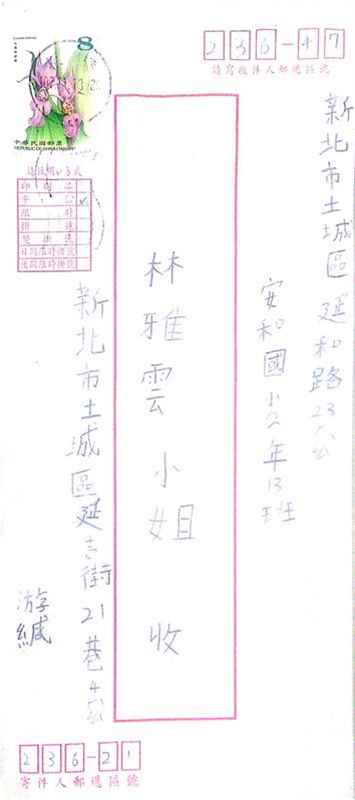 236-47
請寫收件人郵遞區號
新北市土城區延和路23公
安和國小2年13班
林雅雲小姐 收
新北市土城區延吉街21巷4公
游緘
236-21
寄件人郵遞區號
8
中華民國郵票
REPUBLIC OF CHINA (TAIWAN)
限時